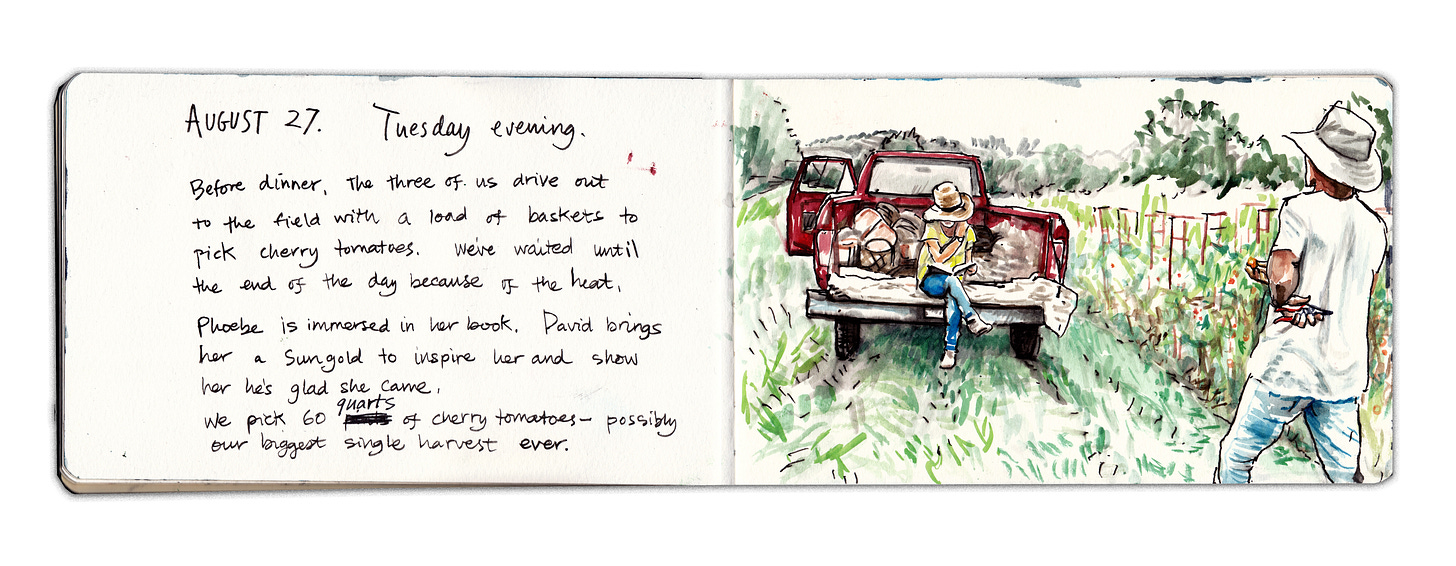 AUGUST 27. Tuesday evening.
Before dinner, The three of us drive out
to the field with a load of baskets to
pick cherry tomatoes. We've waited until
the end of the day because of the heat.
Phoebe is immersed in her book. David brings
her a Sungold to inspire her and show
her he's glad she came.
We pick 60 quarts of cherry tomatoes – possibly
our biggest single harvest ever.